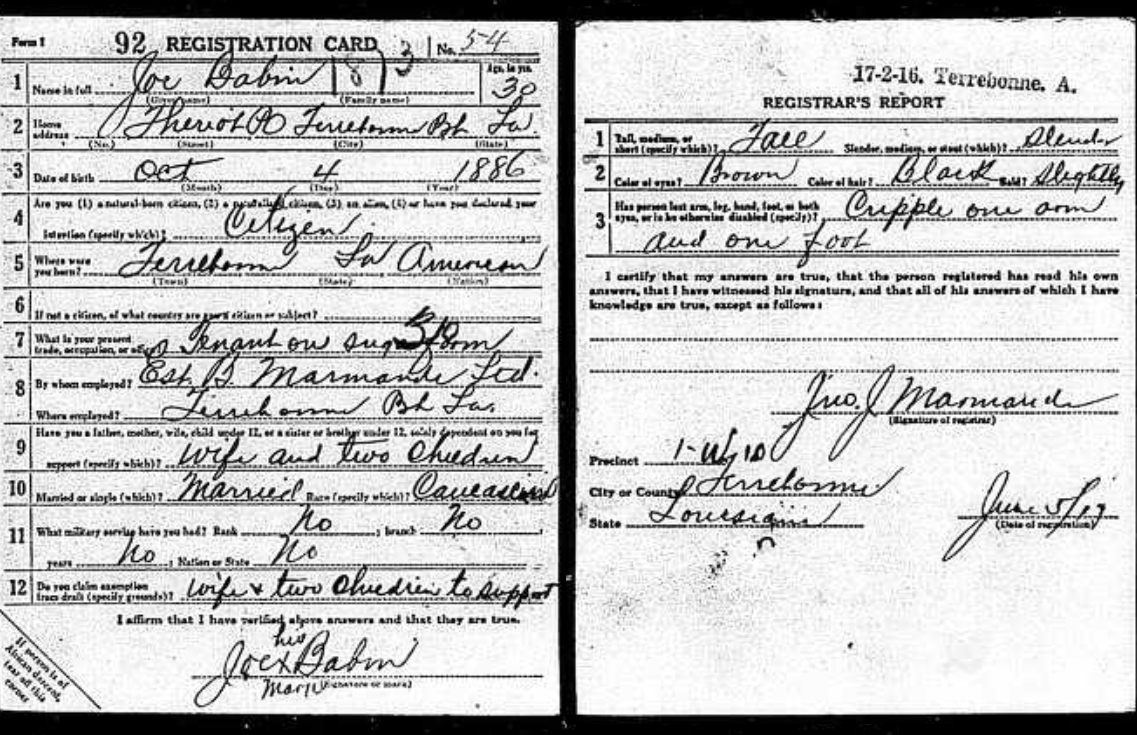 Form 1 92 REGISTRATION CARD 3 No. 54
1 Name in full Joe Babin 187 Age, in yrs. 30
(Given name) (Family name)
2 Home address Theriot PO Terrebonne Ph La.
(No.) (Street) (City) (State)
3 Date of birth Oct 4 1886
(Month) (Day) (Year)
Are you (1) a natural-born citizen, (2) a naturalized citizen, (3) an alien, (4) or have you declared your
4 intention (specify which)? Citizen
5 Where were you born? Terrebonne La American
(Town) (State) (Nation)
6 If not a citizen, of what country are you a citizen or subject?
7 What is your present trade, occupation, or office? Tenant on sugar farm
8 By whom employed? Est. B. Marmande Ltd.
Where employed? Terrebonne Ph La.
Have you a father, mother, wife, child under 12, or a sister or brother under 12, solely dependent on you for
9 support (specify which)? Wife and two Children
10 Married or single (which)? Married Race (specify which)? Caucasian
11 What military service have you had? Rank No ; branch No ;
years No ; Nation or State No
12 Do you claim exemption from draft (specify grounds)? Wife & two Children to support
I affirm that I have verified above answers and that they are true.
his
Joe x Babin
mark (Signature or mark)
If person is of
African descent,
tear off this
corner
17-2-16. Terrebonne, A.
REGISTRAR'S REPORT
1 Tall, medium, or short (specify which)? Tall Slender, medium, or stout (which)? Slender
2 Color of eyes? Brown Color of hair? Black Bald? Slightly
3 Has person lost arm, leg, hand, foot, or both eyes, or is he otherwise disabled (specify)? Cripple one arm
and one foot
I certify that my answers are true, that the person registered has read his own
answers, that I have witnessed his signature, and that all of his answers of which I have
knowledge are true, except as follows:
Jno. J Marmande
(Signature of registrar)
Precinct 1-W 10
City or County Terrebonne
State Louisiana June 5/17
(Date of registration)